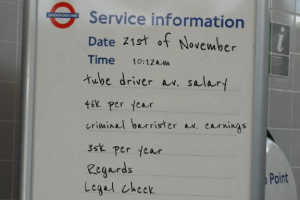 UNDERGROUND
Service information
Date 21st of November
Time 10:12am
tube driver av. salary
46k per year
criminal barrister av. earnings
35k per year
Regards
Legal Cheek
Point